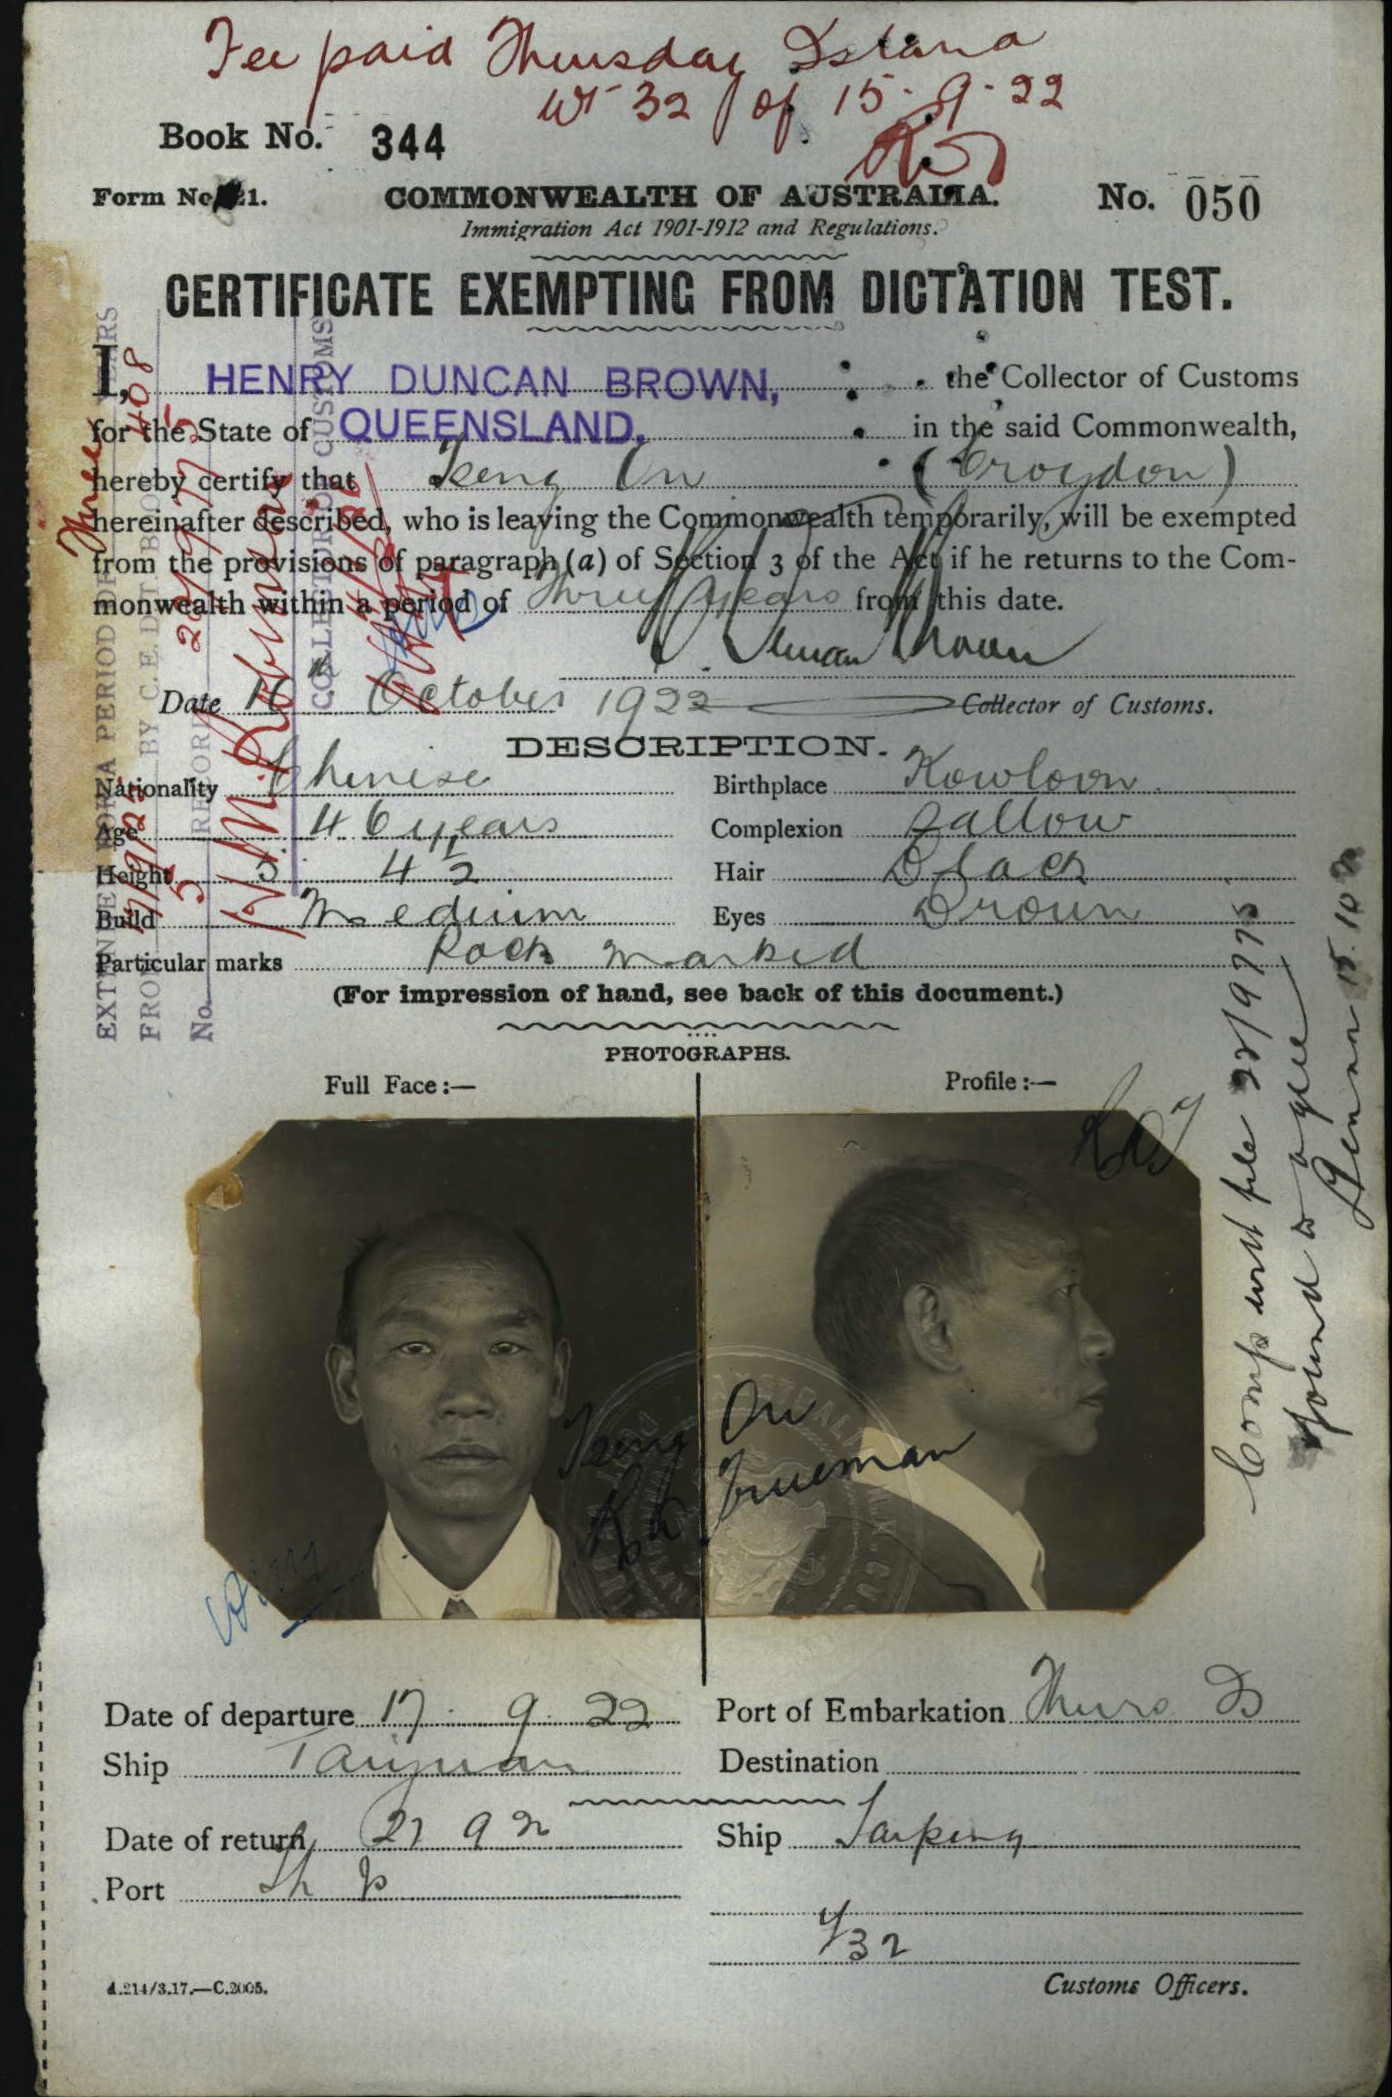 Fee paid Thursday Island
of 15-9-22
Book No. 344
Form No. 21.
COMMONWEALTH OF AUSTRALIA.
No. 050
Immigration Act 1901-1912 and Regulations.
CERTIFICATE EXEMPTING FROM DICTATION TEST.
I, HENRY DUNCAN BROWN, the Collector of Customs
for the State of QUEENSLAND, in the said Commonwealth,
hereby certify that On (Croydon)
hereinafter described, who is leaving the Commonwealth temporarily, will be exempted
from the provisions of paragraph (a) of Section 3 of the Act if he returns to the Com-
monwealth within a period of Three years from this date.
H. Duncan Brown
Date 16th October 1922 Collector of Customs.
DESCRIPTION.
Nationality Chinese Birthplace Kowloon
Age 46 years Complexion Sallow
Height 5' 4½ Hair Black
Build Medium Eyes Brown
Particular marks Pock marked
(For impression of hand, see back of this document.)
PHOTOGRAPHS.
Full Face:— Profile:—
On
Trueman
Date of departure 17. 9. 22 Port of Embarkation Thurs Is
Ship Taiyuan Destination
Date of return Ship
Port
A.214/3.17.—C.2005.
Customs Officers.
EXTENDED FOR A PERIOD OF Three YEARS
FROM BY C.E.D.T. BOOK 408
No. RECORD
COLLECTOR OF CUSTOMS
Comp with file
found to agree